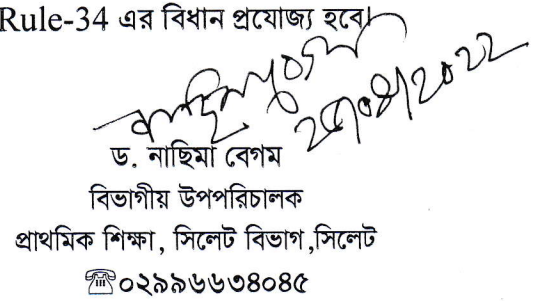 Rule-34 এর বিধান প্রযোজ্য হবে।
ড. নাছিমা বেগম
বিভাগীয় উপপরিচালক
প্রাথমিক শিক্ষা, সিলেট বিভাগ,সিলেট
☎০২৯৯৬৬৩৪০৪৫